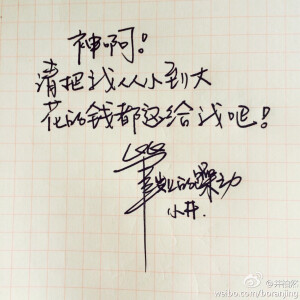 神啊!
请把我从小到大
花的钱都还给我吧!
毕业的躁动
小井.
weibo.com/boranjing